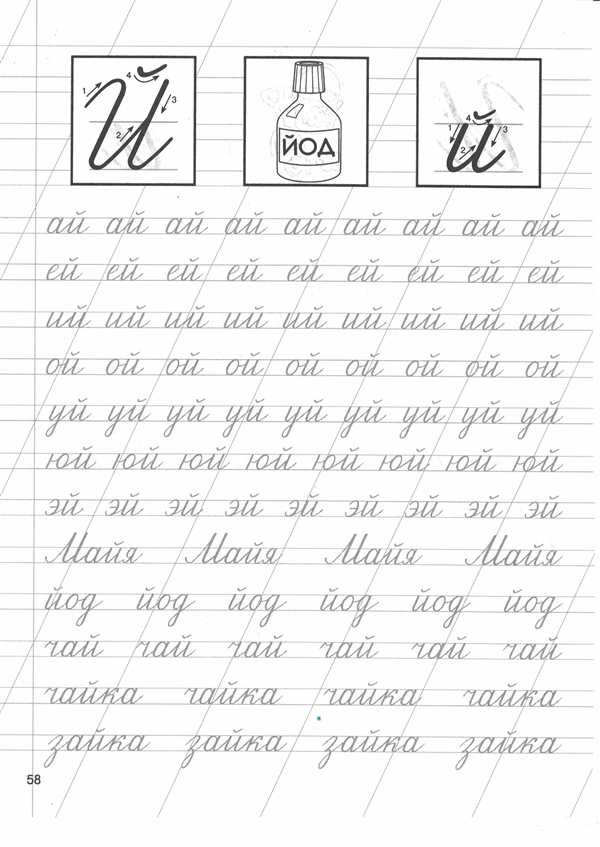 1 4 3 2 Й ЙОД 1 4 3 2 й
ай ай ай ай ай ай ай ай ай
ей ей ей ей ей ей ей ей ей
ий ий ий ий ий ий ий ий ий
ой ой ой ой ой ой ой ой ой
уй уй уй уй уй уй уй уй уй
юй юй юй юй юй юй юй юй
эй эй эй эй эй эй эй эй эй
Майя Майя Майя Майя
йод йод йод йод йод йод
чай чай чай чай чай чай
чайка чайка чайка чайка
зайка зайка зайка зайка
58